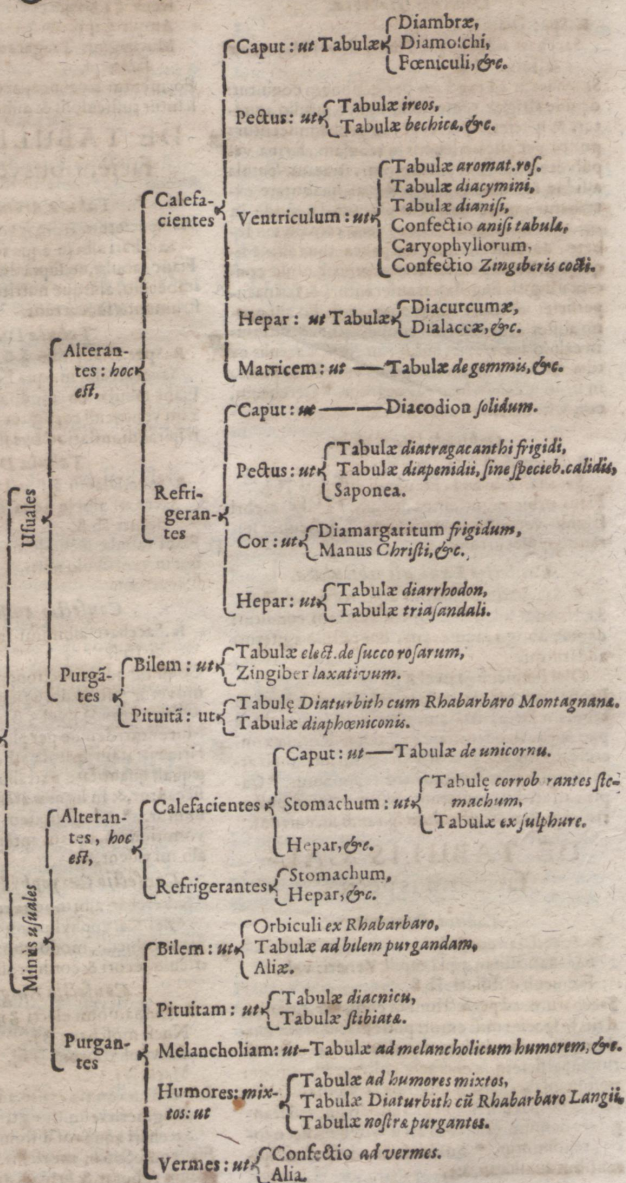 Usuales
Alteran-
tes: hoc
est,
Calefa-
cientes
Caput: ut Tabulæ
Diambræ,
Diamoschi,
Fœniculi, &c.
Pectus: ut
Tabulæ ireos,
Tabulæ bechicæ, &c.
Ventriculum: ut
Tabulæ aromat. ros.
Tabulæ diacymini,
Tabulæ dianisi,
Confectio anisi tabulæ,
Caryophyllorum.
Confectio Zingiberis cocti.
Hepar: ut Tabulæ
Diacurcumæ,
Dialaccæ, &c.
Matricem: ut — Tabulæ de gemmis, &c.
Refri-
geran-
tes
Caput: ut — Diacodion solidum.
Pectus: ut
Tabulæ diatragacanthi frigidi,
Tabulæ diapenidii, sine specieb. calidis,
Saponea.
Cor: ut
Diamargaritum frigidum,
Manus Christi, &c.
Hepar: ut
Tabulæ diarrhodon,
Tabulæ triasandali.
Purgā-
tes
Bilem: ut
Tabulæ elect. de succo rosarum,
Zingiber laxativum.
Pituitā: ut
Tabulę Diaturbith cum Rhabarbaro Montagnanæ.
Tabulæ diaphœniconis.
Minùs usuales
Alteran-
tes, hoc
est,
Calefacientes
Caput: ut — Tabulæ de unicornu.
Stomachum: ut
Tabulę corrob rantes sto-
machum,
Tabulæ ex sulphure.
Hepar, &c.
Refrigerantes
Stomachum,
Hepar, &c.
Purgan-
tes
Bilem: ut
Orbiculi ex Rhabarbaro,
Tabulæ ad bilem purgandam,
Aliæ.
Pituitam: ut
Tabulæ diacnicu,
Tabulæ stibiatæ.
Melancholiam: ut – Tabulæ ad melancholicum humorem, &c.
Humores: mix-
tos: ut
Tabulæ ad humores mixtos,
Tabulæ Diaturbith cū Rhabarbaro Langii,
Tabulæ nostræ purgantes.
Vermes: ut
Confectio ad vermes.
Alia.